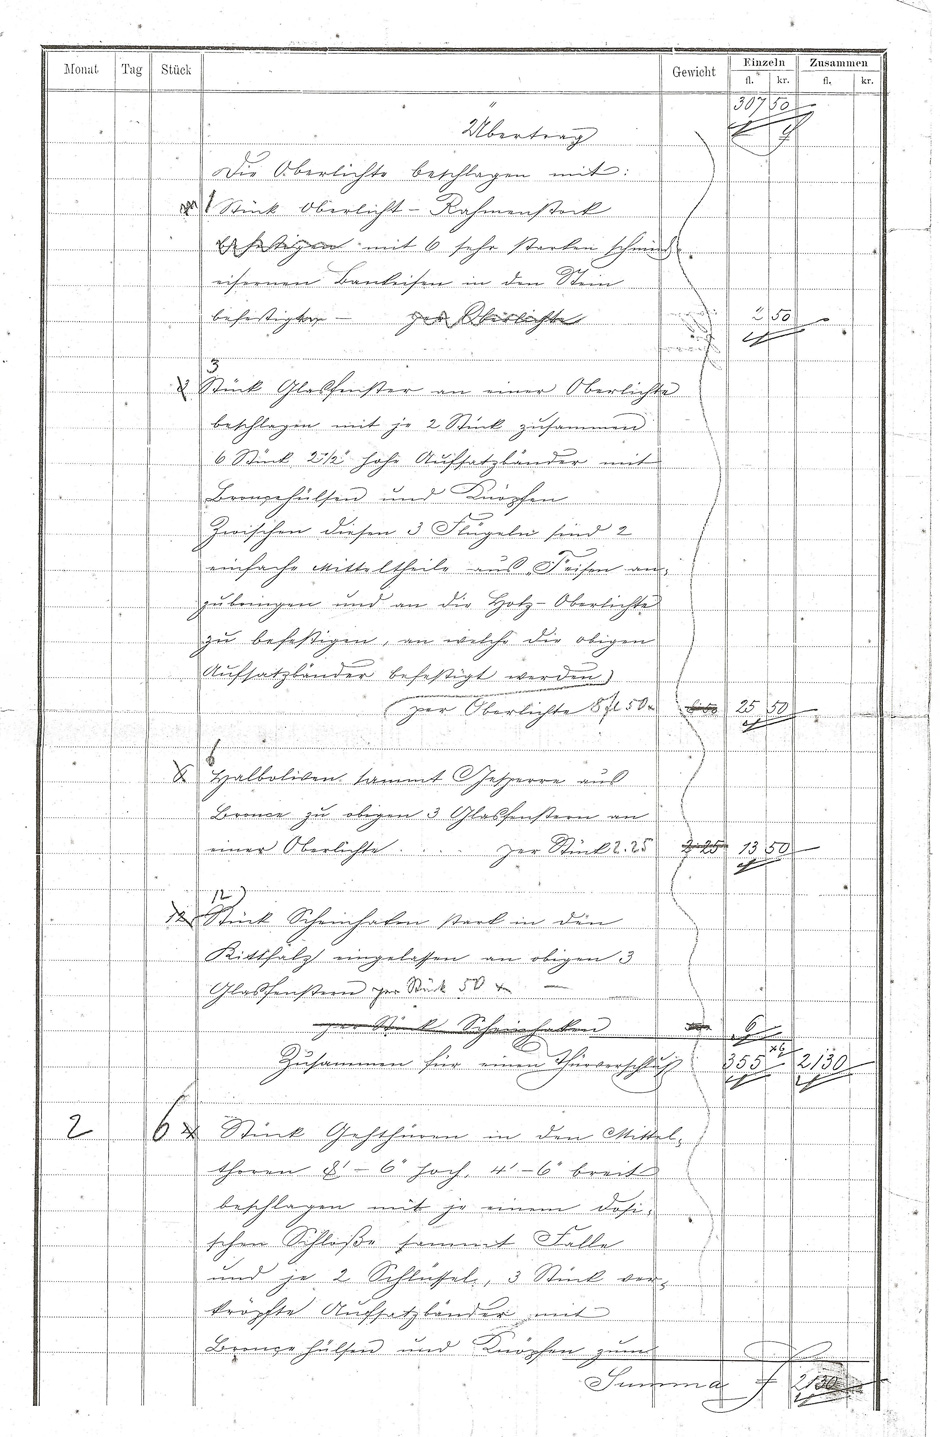 Monat Tag Stück Gewicht Einzeln Zusammen
fl. kr. fl. kr.
307 50
Übertrag
Die Oberlichte beschlagen mit:
1 Stück Oberlicht-Rahmenstock
befestigen mit 6 sehr starken schmied-
eisernen Bankeisen in den Stein
befestigt — per Oberlichte 2 50
3
3 Stück Glasfenster an einer Oberlichte
beschlagen mit je 2 Stück zusammen
6 Stück 2 1/2" hohe Aufsatzbänder mit
Broncehülsen und Knöpfen
Zwischen diesen 3 Flügeln sind 2
einfache Mitteltheile aus Teisen an-
zubringen und an die Holz-Oberlichte
zu befestigen, an welche die obigen
Aufsatzbänder befestigt werden
per Oberlichte 8 fl 50 x 25 50
6
6 Halboliven sammt Gesperre aus
Bronce zu obigen 3 Glasfenstern an
einer Oberlichte . . . per Stück 2.25 2.25 13 50
12
12 Stück Scheinhaken stark in den
Kittfalz eingelassen an obigen 3
Glasfenstern per Stück 50 x —
per Stück Scheinhaken 6
Zusammen für einen Thürverschluß 355 x6 2130
2 6 4 Stück Gehthüren in den Mittel-
thoren 8' – 6" hoch, 4' – 6" breit
beschlagen mit je einem dosi-
schen Schloße sammt Falle
und je 2 Schlüssel, 3 Stück ver-
kröpfte Aufsatzbänder mit
Broncehülsen und Knöpfen zum
Summa f 2130